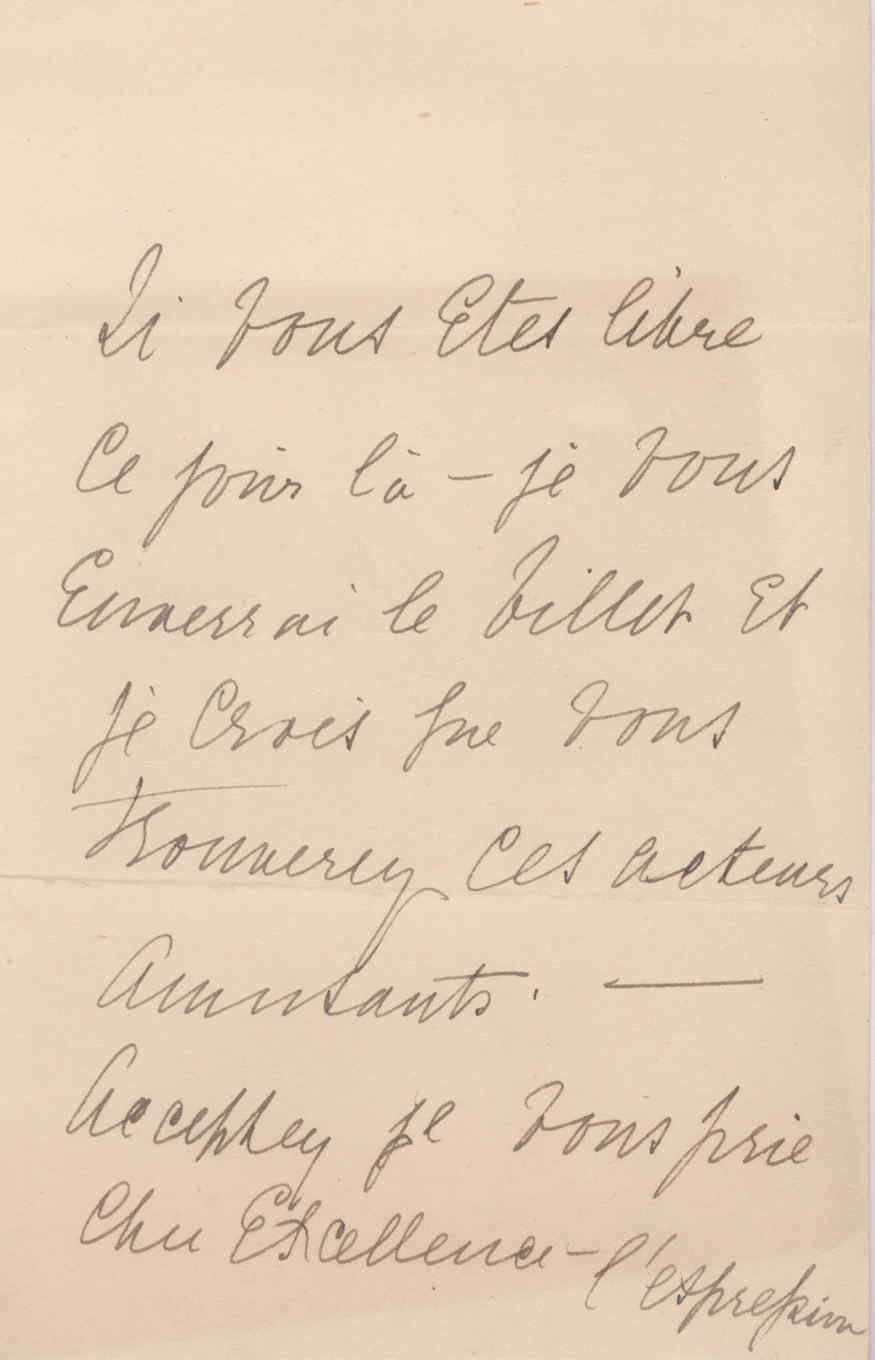 Si vous êtes libre
Ce jour là – je vous
Enverrai le billet et
je crois que vous
trouverez ces acteurs
Amusants. —
Acceptez je vous prie
Cher Excellence – l'expression